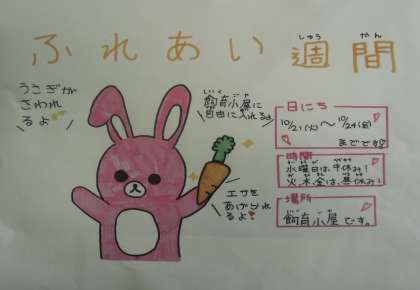 ふれあい週間
しゅう かん
うさぎが
さわれ
るよ
飼育小屋に
しいくごや
自由に入れるよ
エサを
あげられ
るよ
日にち
10/21(火)〜10/24(金)
までです
時間
水曜日は、中休み!
火、木、金は、昼休み!
場所
飼育小屋です。